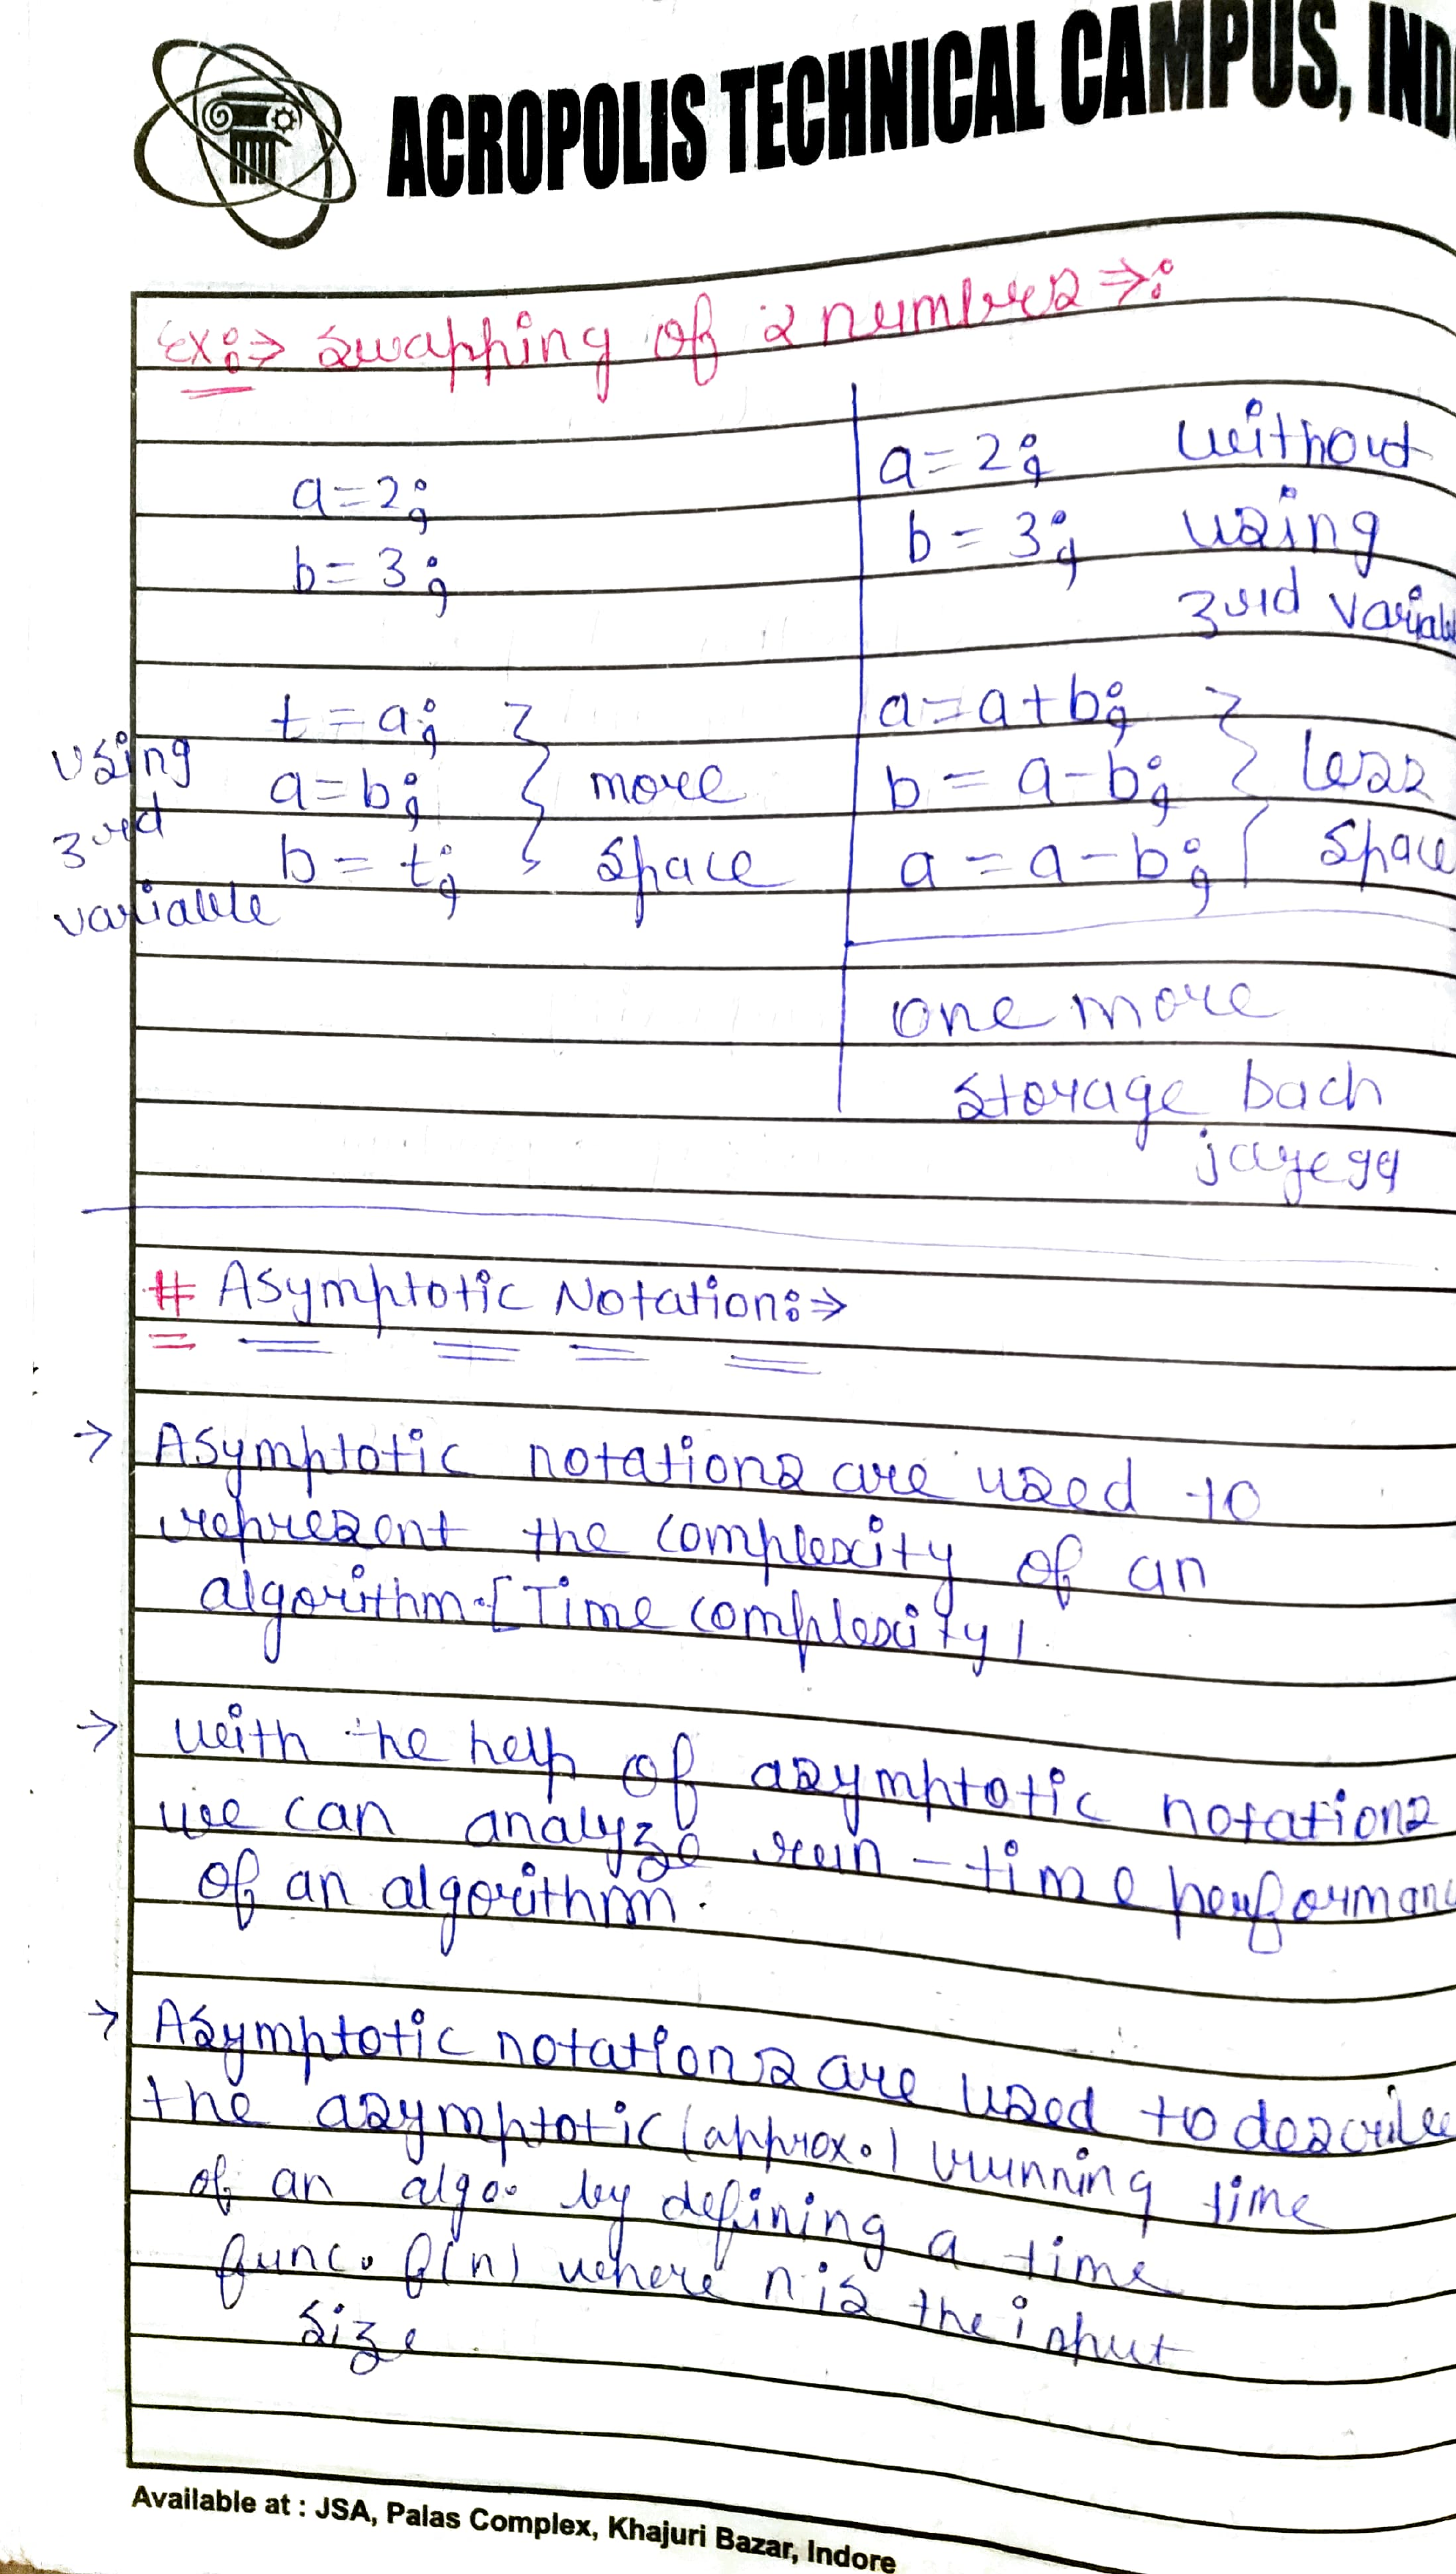 ACROPOLIS TECHNICAL CAMPUS, IND
Ex:⇒ Swapping of 2 numbers ⇒:
a=2;
b=3;
using 3rd variable
t=a;
a=b;
b=t;
} more space
a=2; without
b=3; using
3rd variabl
a=a+b;
b=a-b;
a=a-b;
} less space
one more
storage bach
jayega
# Asymptotic Notation:⇒
→ Asymptotic notations are used to
represent the complexity of an
algorithm.[Time complexity].
→ with the help of asymptotic notations
we can analyze run-time performanc
of an algorithm.
→ Asymptotic notations are used to describe
the asymptotic (approx.) running time
of an algo. by defining a time
func. f(n) where n is the input
size.
Available at : JSA, Palas Complex, Khajuri Bazar, Indore